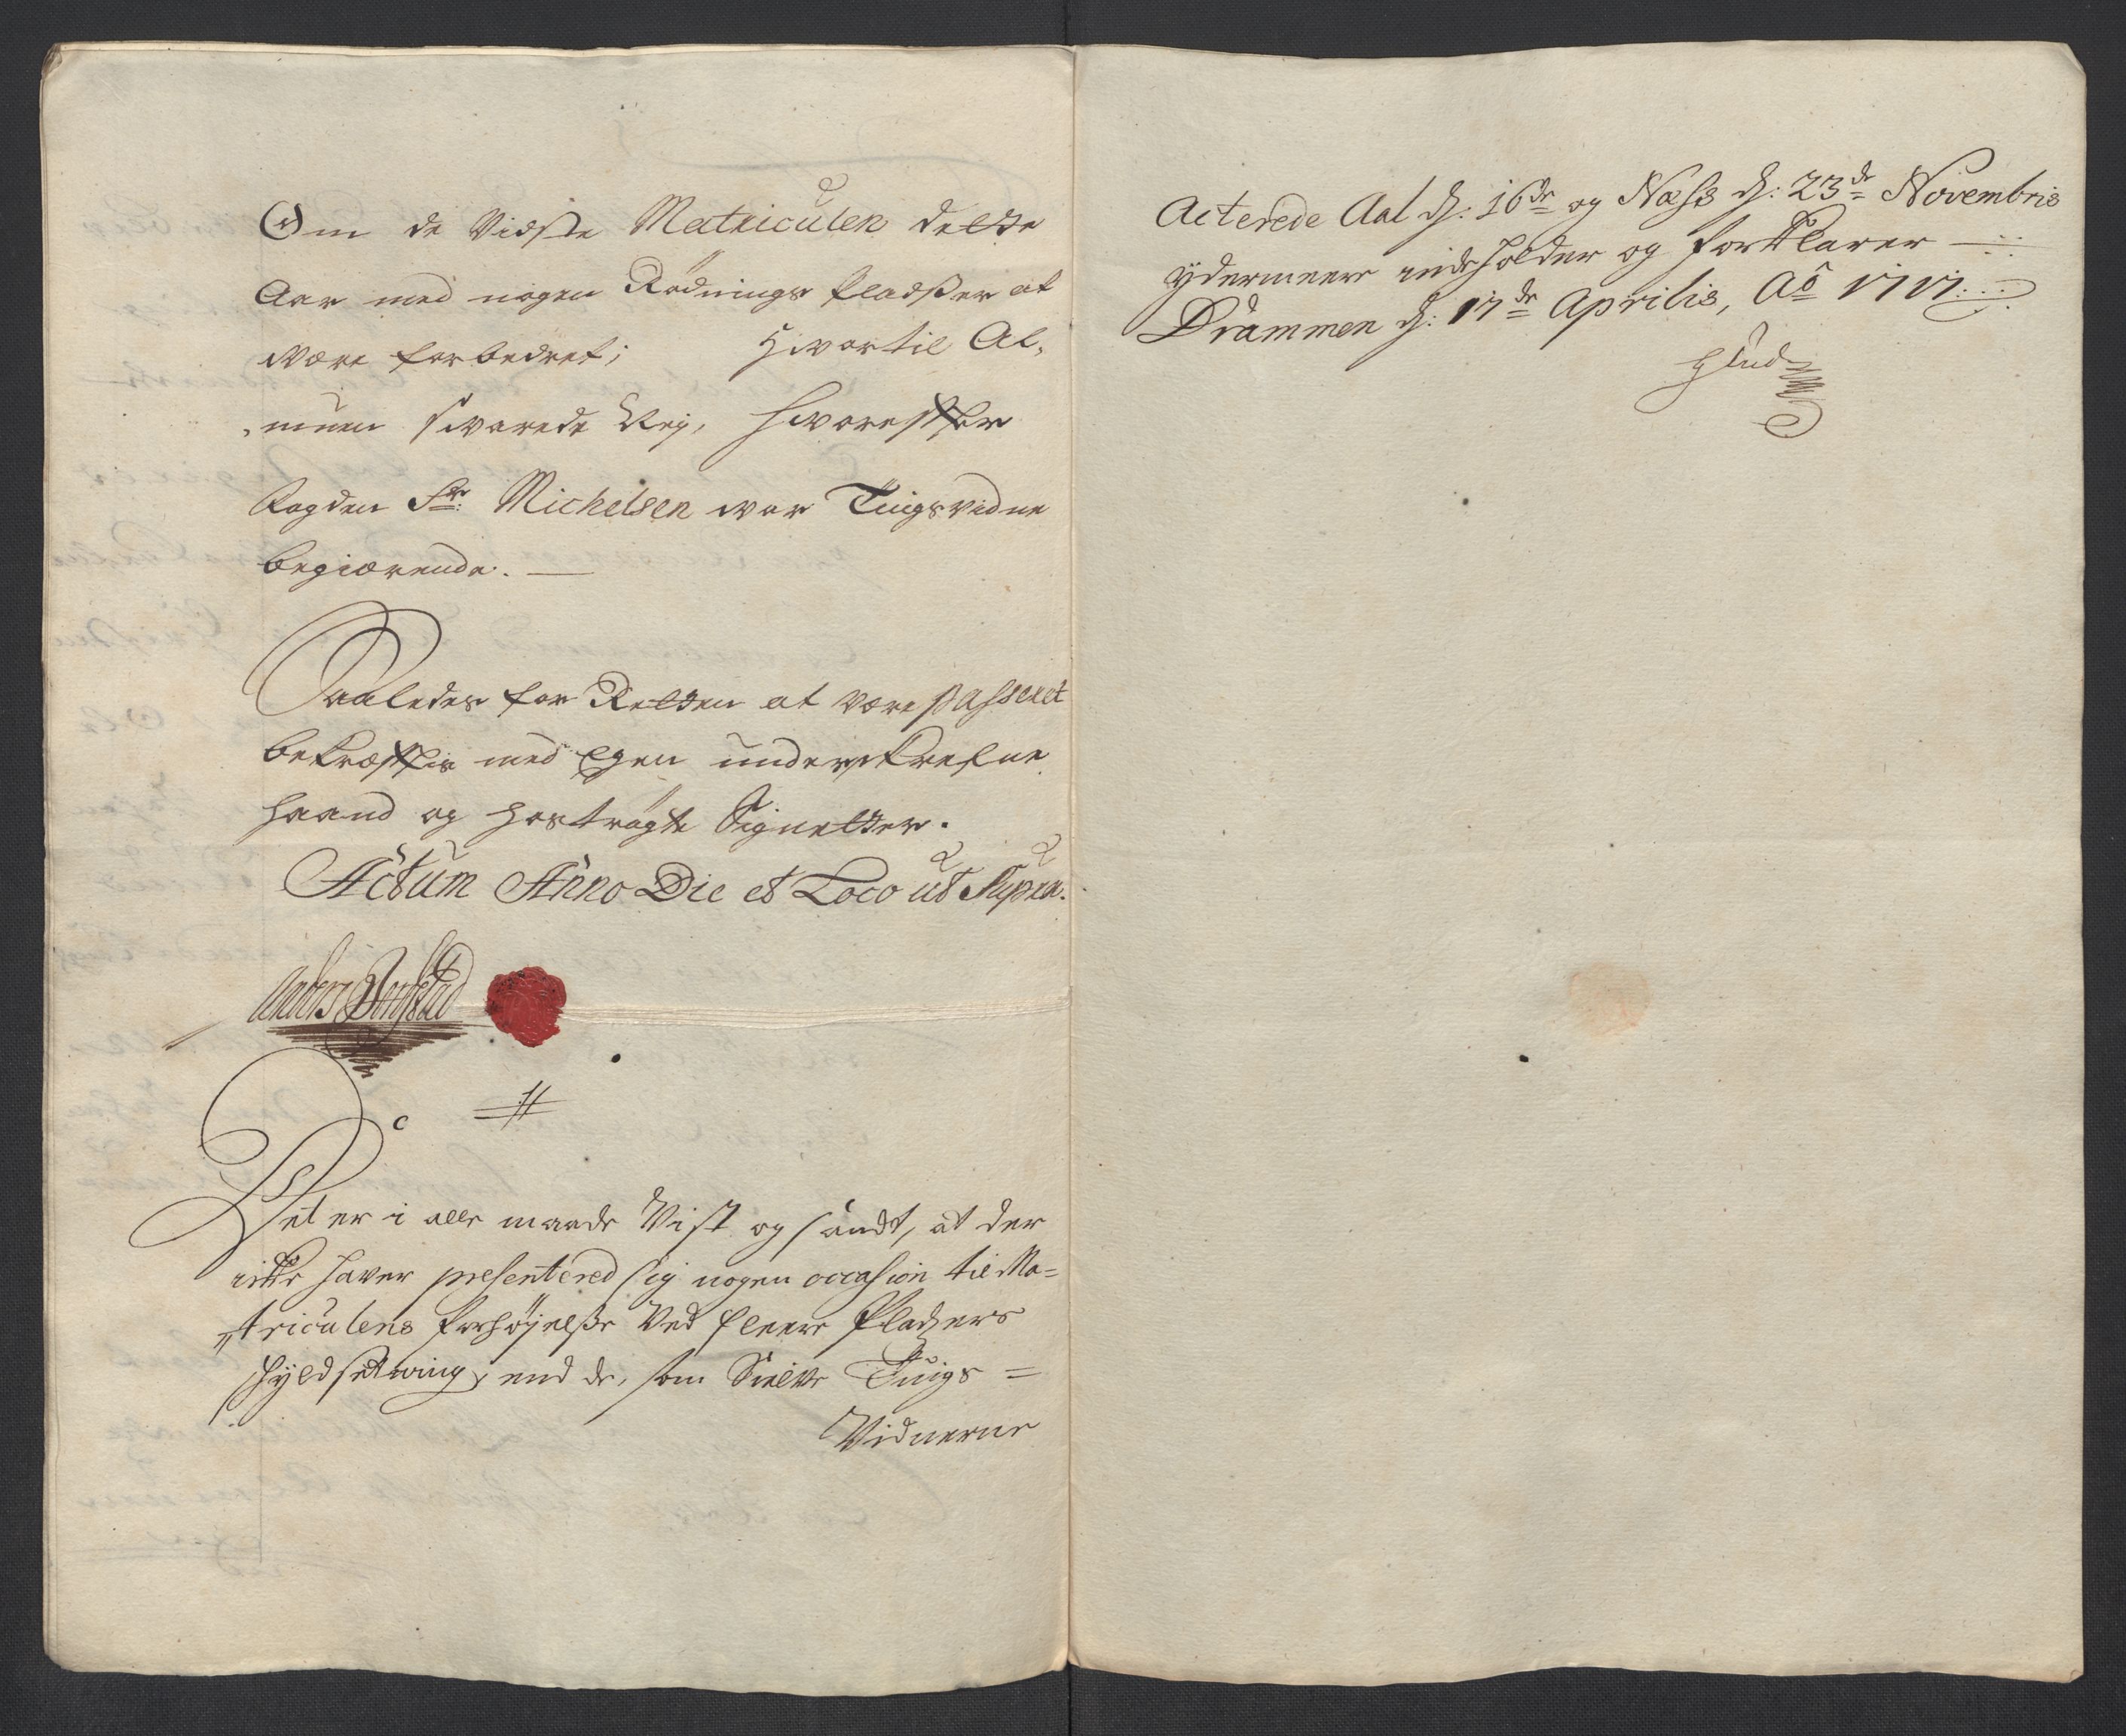 Om de Vidste Matriculen dette
Aar med nogen Rødnings Pladser at
være forbedret; Hvortil Al-
muen svarede Nej, hvorefter
Fogden Sr: Michelsen var Tingsvidne
begiærende. —
Saaledes for Retten at være passeret
bekræftis med Egen underskrefne
haand og hostrøgte Signetter.
Actum Anno Die et Loco ut Supra.
Anders
Det er i alle maade Vist og sandt, at der
icke haver presentered sig nogen occasion til Ma=
triculens forhøjelse ved fleere Pladzers
skyldsetning, end de, som Sielve Tings=
Vidnerne
Acterede Aal d: 16de og Næss d: 23de Novembris
ydermeere indeholder og forklarer —
Drammen d: 17de Aprilis, Ao 1717.